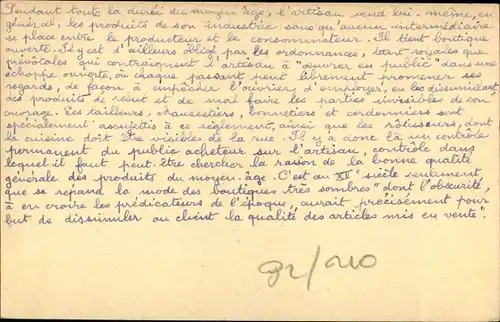 Pendant toute la durée du moyen-âge, l'artisan vend lui-même, en
général, les produits de son industrie sans qu'aucun intermédiaire
se place entre le producteur et le consommateur. Il tient boutique
ouverte. Il y est d'ailleurs obligé par les ordonnances, tant royales que
prévôtales qui contraignent l'artisan à "œuvrer en public" dans une
échoppe ouverte, où chaque passant peut librement promener ses
regards, de façon à empêcher l'ouvrier, d'employer, en les dissimulant,
des produits de rebut et de mal faire les parties invisibles de son
ouvrage. Les tailleurs, chaussetiers, bonnetiers et cordonniers sont
spécialement assujettis à ce règlement, ainsi que les rôtisseurs, dont
la cuisine doit être visible de la rue. Il y a donc là un contrôle
permanent du public acheteur sur l'artisan, contrôle dans
lequel il faut peut-être chercher la raison de la bonne qualité
générale des produits du moyen-âge. C'est au XVe siècle seulement
que se répand la mode des boutiques "très sombres" dont l'obscurité,
à en croire les prédicateurs de l'époque, "aurait précisément pour
but de dissimuler au client la qualité des articles mis en vente".
92/210